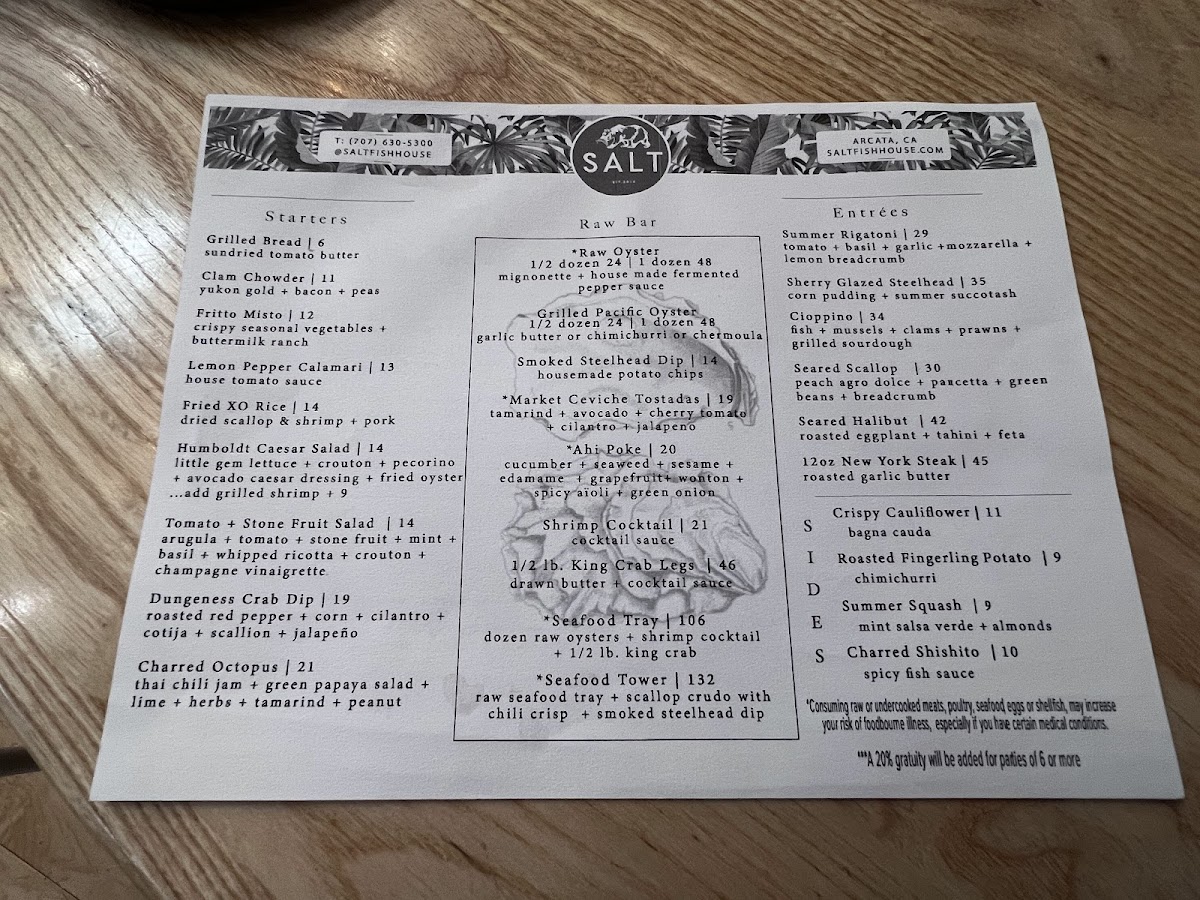 T: (707) 630-5300
@SALTFISHHOUSE
SALT
ARCATA, CA
SALTFISHHOUSE.COM
Starters
Grilled Bread | 6
sundried tomato butter
Clam Chowder | 11
yukon gold + bacon + peas
Fritto Misto | 12
crispy seasonal vegetables +
buttermilk ranch
Lemon Pepper Calamari | 13
house tomato sauce
Fried XO Rice | 14
dried scallop & shrimp + pork
Humboldt Caesar Salad | 14
little gem lettuce + crouton + pecorino
+ avocado caesar dressing + fried oyster
...add grilled shrimp + 9
Tomato + Stone Fruit Salad | 14
arugula + tomato + stone fruit + mint +
basil + whipped ricotta + crouton +
champagne vinaigrette
Dungeness Crab Dip | 19
roasted red pepper + corn + cilantro +
cotija + scallion + jalapeño
Charred Octopus | 21
thai chili jam + green papaya salad +
lime + herbs + tamarind + peanut
Raw Bar
*Raw Oyster
1/2 dozen 24 | 1 dozen 48
mignonette + house made fermented
pepper sauce
Grilled Pacific Oyster
1/2 dozen 24 | 1 dozen 48
garlic butter or chimichurri or chermoula
Smoked Steelhead Dip | 14
housemade potato chips
*Market Ceviche Tostadas | 19
tamarind + avocado + cherry tomato
+ cilantro + jalapeno
*Ahi Poke | 20
cucumber + seaweed + sesame +
edamame + grapefruit+ wonton +
spicy aïoli + green onion
Shrimp Cocktail | 21
cocktail sauce
1/2 lb. King Crab Legs | 46
drawn butter + cocktail sauce
*Seafood Tray | 106
dozen raw oysters + shrimp cocktail
+ 1/2 lb. king crab
*Seafood Tower | 132
raw seafood tray + scallop crudo with
chili crisp + smoked steelhead dip
Entrées
Summer Rigatoni | 29
tomato + basil + garlic +mozzarella +
lemon breadcrumb
Sherry Glazed Steelhead | 35
corn pudding + summer succotash
Cioppino | 34
fish + mussels + clams + prawns +
grilled sourdough
Seared Scallop | 30
peach agro dolce + pancetta + green
beans + breadcrumb
Seared Halibut | 42
roasted eggplant + tahini + feta
12oz New York Steak | 45
roasted garlic butter
SIDES
Crispy Cauliflower | 11
bagna cauda
Roasted Fingerling Potato | 9
chimichurri
Summer Squash | 9
mint salsa verde + almonds
Charred Shishito | 10
spicy fish sauce
*Consuming raw or undercooked meats, poultry, seafood, eggs or shellfish, may increase
your risk of foodbourne illness, especially if you have certain medical conditions.
***A 20% gratuity will be added for parties of 6 or more